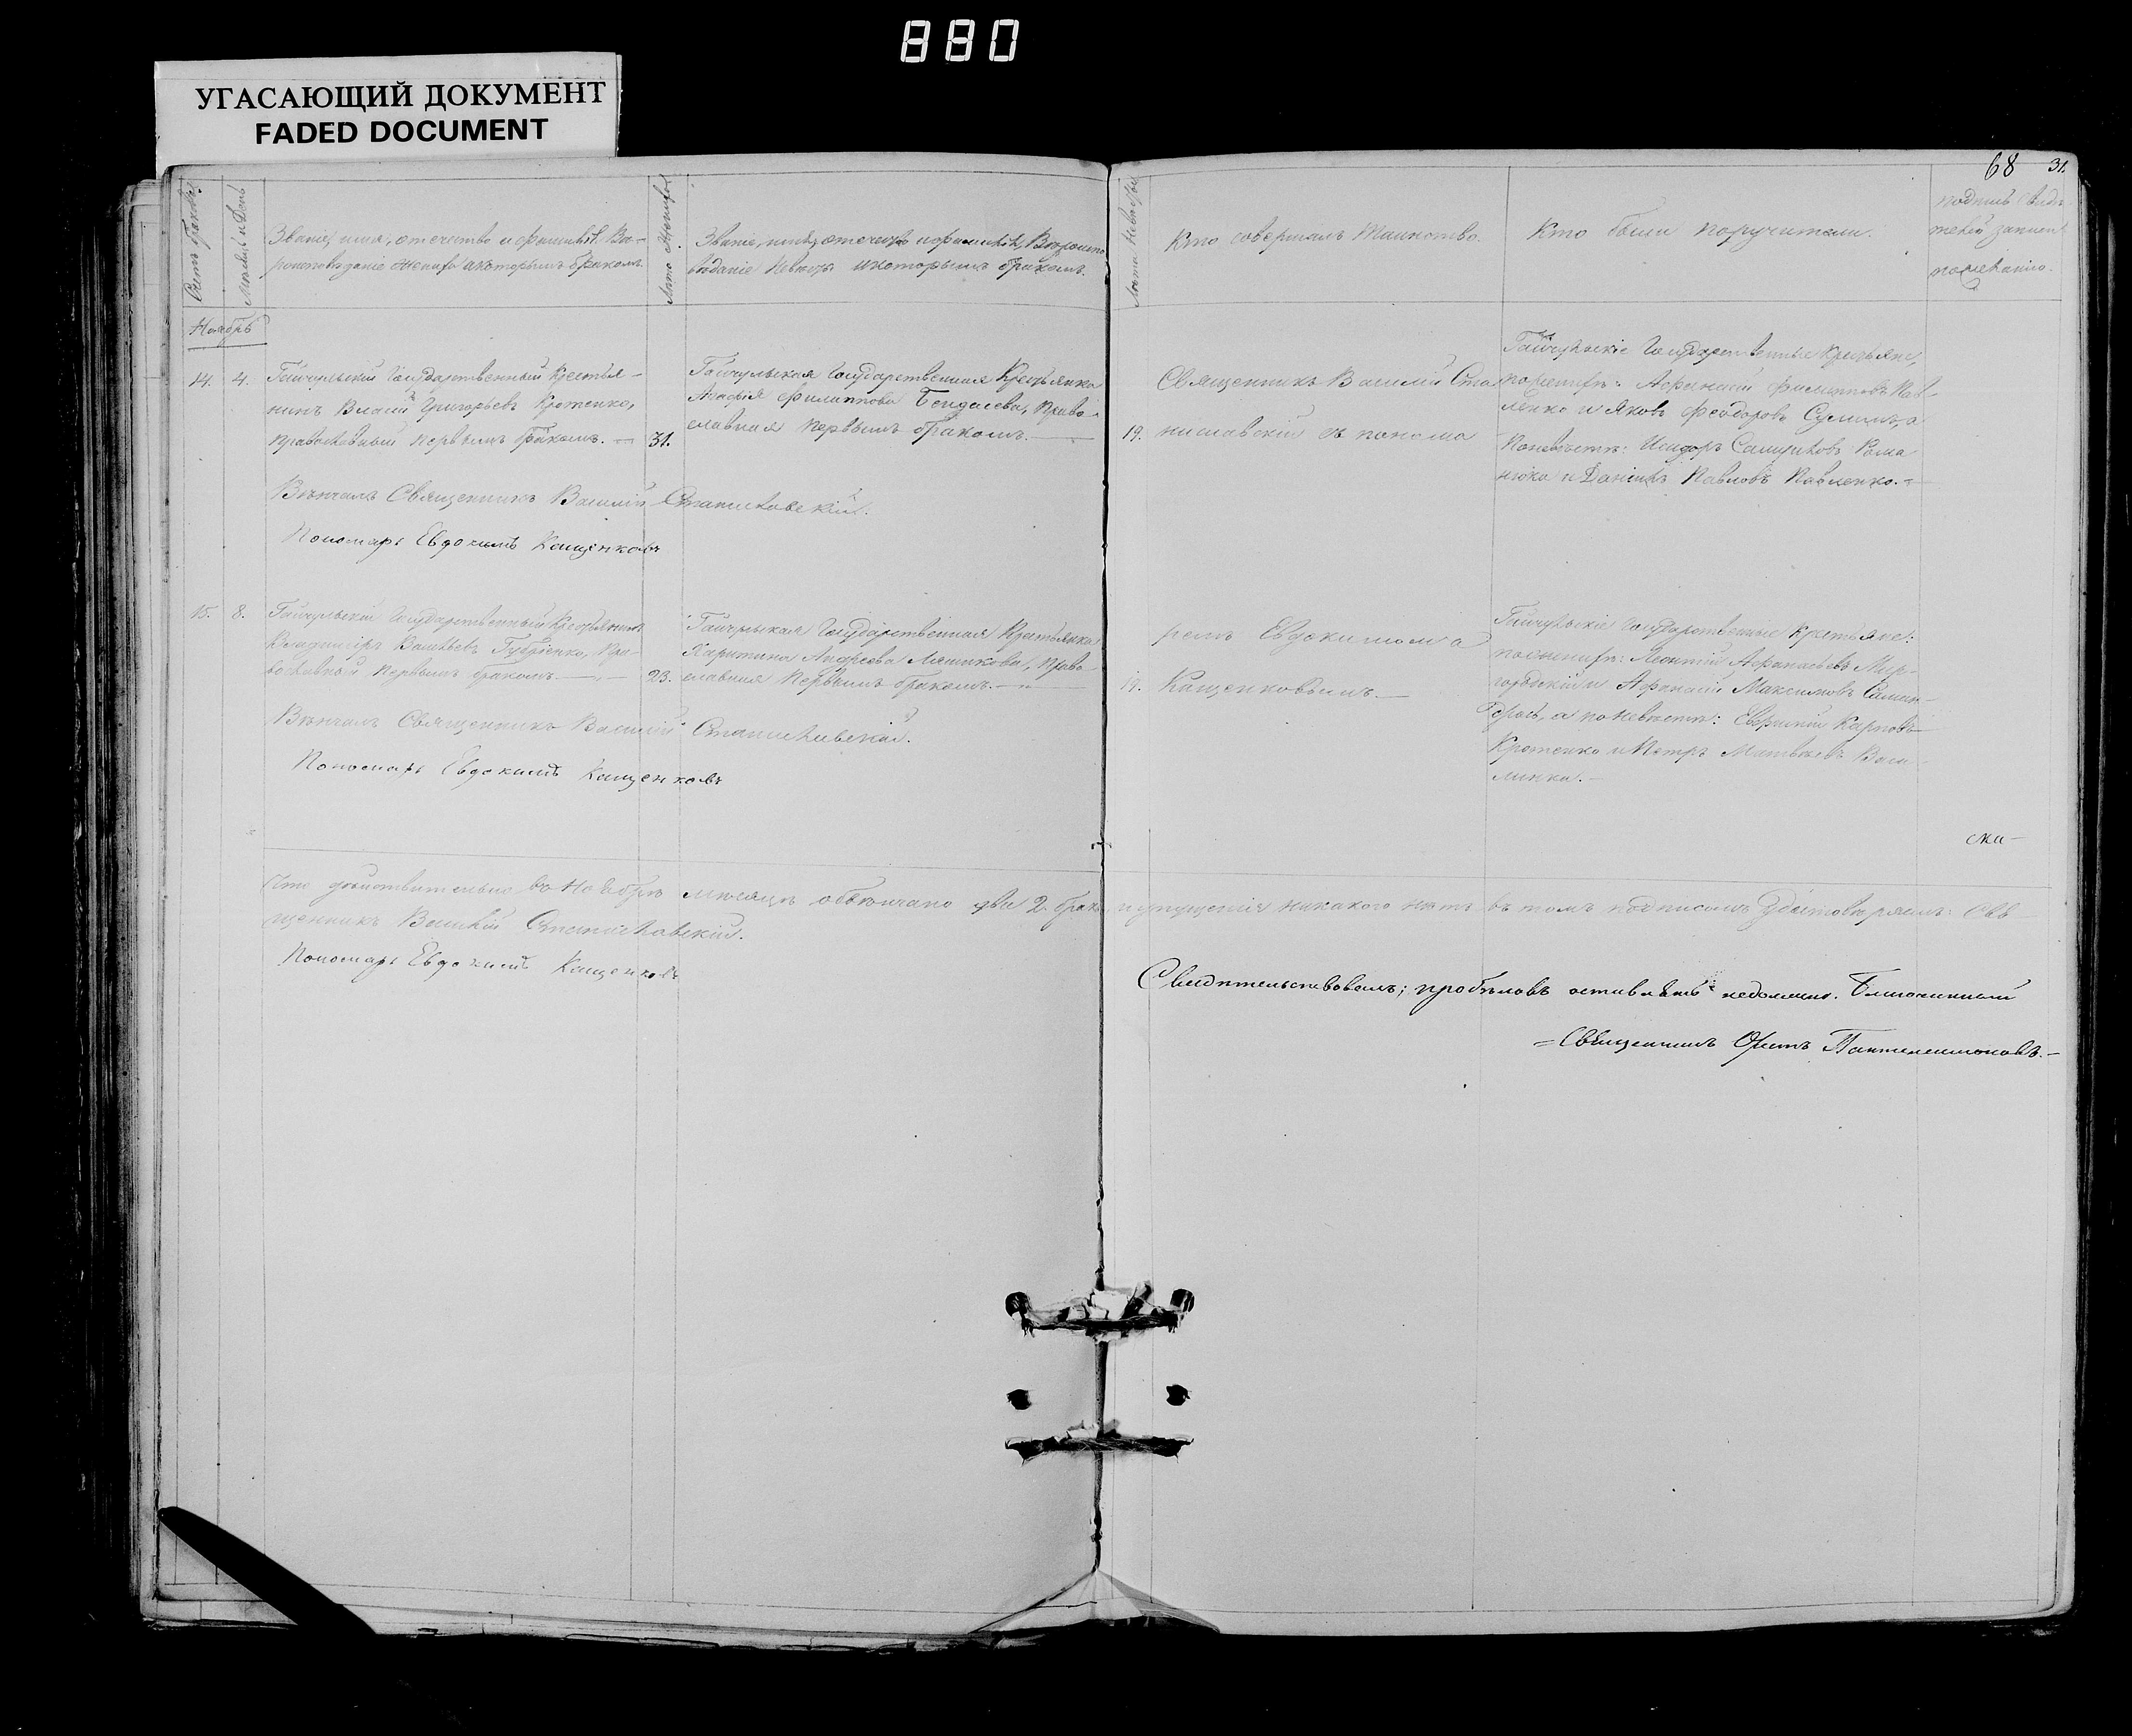 880
УГАСАЮЩИЙ ДОКУМЕНТ
FADED DOCUMENT
68 31.
Счетъ браковъ.
Мѣсяцъ и День
Званіе, имя, отечество и фамилія, Вѣ-
роисповѣданіе Жениха и которымъ бракомъ.
Лѣта Жениха
Званіе, имя, отечество и фамилія, Вѣроиспо
вѣданіе Невѣсты и которымъ бракомъ.
Лѣта Невѣсты
Кто совершалъ Таинство.
Кто были поручители.
подпись свидѣ-
телей записи
по желанію.
Ноябрь
14. 4. Гайчульскій Государственный Крестья-
нинъ Власій Григорьевъ Кротенко,
православный первымъ бракомъ. 31.
Гайчульская Государственная Крестьянка
Агафія Филиппова Бендасева, Право-
славная первымъ бракомъ.
19.
Священникъ Василій Ста
ниславскій съ понома
Гайчульскіе Государственные Крестьяне,
по женихѣ: Афанасій Филипповъ Пав-
ленко и Яковъ Феодоровъ Сулима, а
По невѣстѣ: Исидоръ Самуиловъ Рома
нюка и Даніилъ Павловъ Павленко.
Вѣнчалъ Священникъ Василій Станиславскій.
Пономарь Евдокимъ Кащенковъ
15. 8. Гайчульскій Государственный Крестьянинъ
Владиміръ Губріенко, Пра-
вославный Первымъ бракомъ 23.
Гайчульская Государственная Крестьянка
Андреева Ляшикова, Право-
славная Первымъ бракомъ.
19.
ремъ Евдокимомъ
Кащенковымъ.
Гайчульскіе Государственные Крестьяне:
по женихѣ: Леонтій Афанасьевъ Мир-
городскій и Афанасій Максимовъ
а по невѣстѣ: Карповъ
Кротенко и Петръ Матвѣевъ Васи-
линка.
Вѣнчалъ Священникъ Василій Станиславскій.
Пономарь Евдокимъ Кащенковъ
Что дѣйствительно въ Ноябрѣ мѣсяцѣ обвѣнчано два 2. брака, и упущенія никакого нѣтъ въ томъ подписомъ удостовѣряемъ: Свя-
щенникъ Василій Станиславскій.
Пономарь Евдокимъ Кащенковъ
Свидѣтельствовалъ; пробѣловъ оставлять недолжно. Благочинный
=Священникъ Орестъ Пантелеимоновъ.-